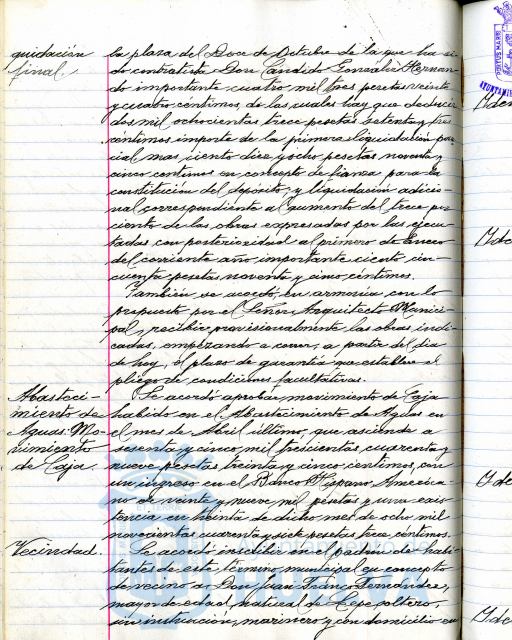 quidación
final
la plaza del Doce de Octubre de la que ha si-
do contratista Don Candido Gonzalez Hernan-
do importante cuatro mil tres pesetas veinte
y cuatro céntimos, de las cuales hay que deducir
dos mil ochocientas trece pesetas setenta y tres
céntimos importe de la primera liquidación par-
cial mas, ciento diez y ocho pesetas noventa y
cinco centimos en concepto de fianza para la
constitución del depósito; y liquidación adicio-
nal correspondiente al aumento del trece por
ciento de las obras expresadas por las ejecu-
tadas con posterioridad al primero de Enero
del corriente año importante ciento cin-
cuenta pesetas noventa y cinco céntimos.
También se acordó, en armonía con lo
propuesto por el Señor Arquitecto Munici-
pal, recibir provisionalmente las obras indi-
cadas, empezando a correr, a partir del día
de hoy, el plazo de garantía que establece el
pliego de condiciones facultativas.
Abasteci-
miento de
Aguas: Mo-
vimiento
de Caja.
Se acordó aprobar movimiento de Caja
habido en el Abastecimiento de Aguas en
el mes de Abril último, que asciende a
sesenta y cinco mil trescientas cuarenta y
nueve pesetas treinta y cinco céntimos, con
un ingreso en el Banco Hispano America-
no de veinte y nueve mil pesetas y una exis-
tencia en treinta de dicho mes de ocho mil
novecientas cuarenta y siete pesetas trece céntimos.
Vecindad.
Se acordó inscribir en el padrón de habi-
tantes de este término municipal en concepto
de vecino a Don Juan Franco Fernandez,
mayor de edad, natural de Lepe, soltero,
sin instrucción, marinero y con domicilio en